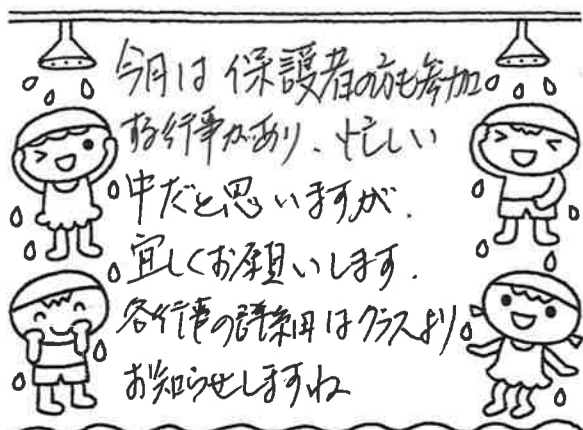 今月は保護者の方も参加
する行事があり、忙しい
中だと思いますが、
宜しくお願いします。
各行事の詳細はクラスより
お知らせしますね